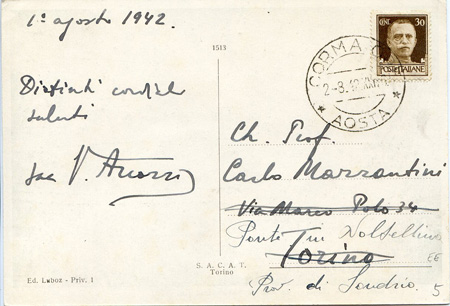 1° agosto 1942.
1513
Distinti cordiali
saluti
CENT. 30
POSTE ITALIANE
AOSTA
Ch. Prof.
Carlo Mazzantini
Via Marco Polo 34
Ponte in Valtellina
Torino
Prov. di Sondrio
S. A. C. A. T.
Torino
Ed. Luboz - Priv. 1
EE
5